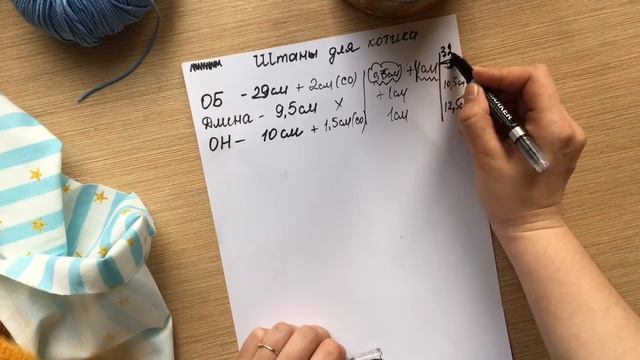 Штаны для котика
ОБ - 29см + 2см (СО) +1см 32
Длина - 9,5см х +1см 10,5см
ОН - 10см + 1,5см (СО) 1см 12,5см